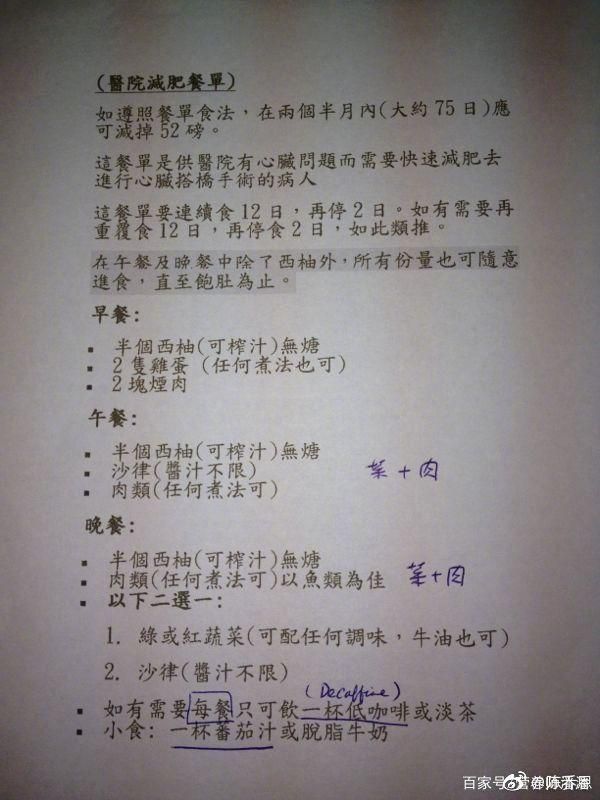 (醫院減肥餐單)
如遵照餐單食法，在兩個半月內(大約 75 日)應
可減掉 52 磅。
這餐單是供醫院有心臟問題而需要快速減肥去
進行心臟搭橋手術的病人
這餐單要連續食 12 日，再停 2 日。如有需要再
重覆食 12 日，再停食 2 日，如此類推。
在午餐及晚餐中除了西柚外，所有份量也可隨意
進食，直至飽肚為止。
早餐:
▪ 半個西柚(可榨汁)無糖
▪ 2 隻雞蛋 (任何煮法也可)
▪ 2 塊煙肉
午餐:
▪ 半個西柚(可榨汁)無糖
▪ 沙律(醬汁不限) 菜 + 肉
▪ 肉類(任何煮法可)
晚餐:
▪ 半個西柚(可榨汁)無糖
▪ 肉類(任何煮法可)以魚類為佳 菜+肉
▪ 以下二選一:
1. 綠或紅蔬菜(可配任何調味，牛油也可)
2. 沙律(醬汁不限)
(Decaffine)
▪ 如有需要每餐只可飲一杯低咖啡或淡茶
▪ 小食: 一杯蕃茄汁或脫脂牛奶
百家号